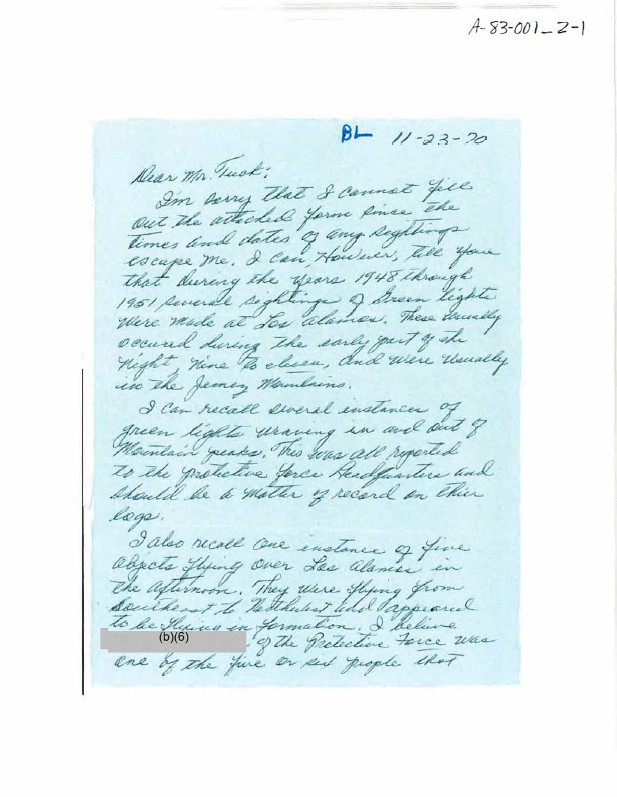 A-83-001_2-1
BL 11-23-70
Dear Mr. Tuck:
I'm sorry that I cannot fill
out the attached form since the
times and dates of any sightings
escape me. I can However, tell you
that during the years 1948 through
1951 several sightings of Green lights
were made at Los Alamos. These usually
occured during the early part of the
Night, Nine to eleven, and were usually
in the Jemez Mountains.
I can recall several instances of
green lights weaving in and out of
Mountain peaks. This was all reported
to the protective force Headquarters and
should be a matter of record on thier
logs.
I also recall one instance of five
objects flying over Los Alamos in
the afternoon. They were flying from
Southeast to Northwest and appeared
to be flying in formation. I believe
(b)(6) of the Protective Force was
one of the five or six people that